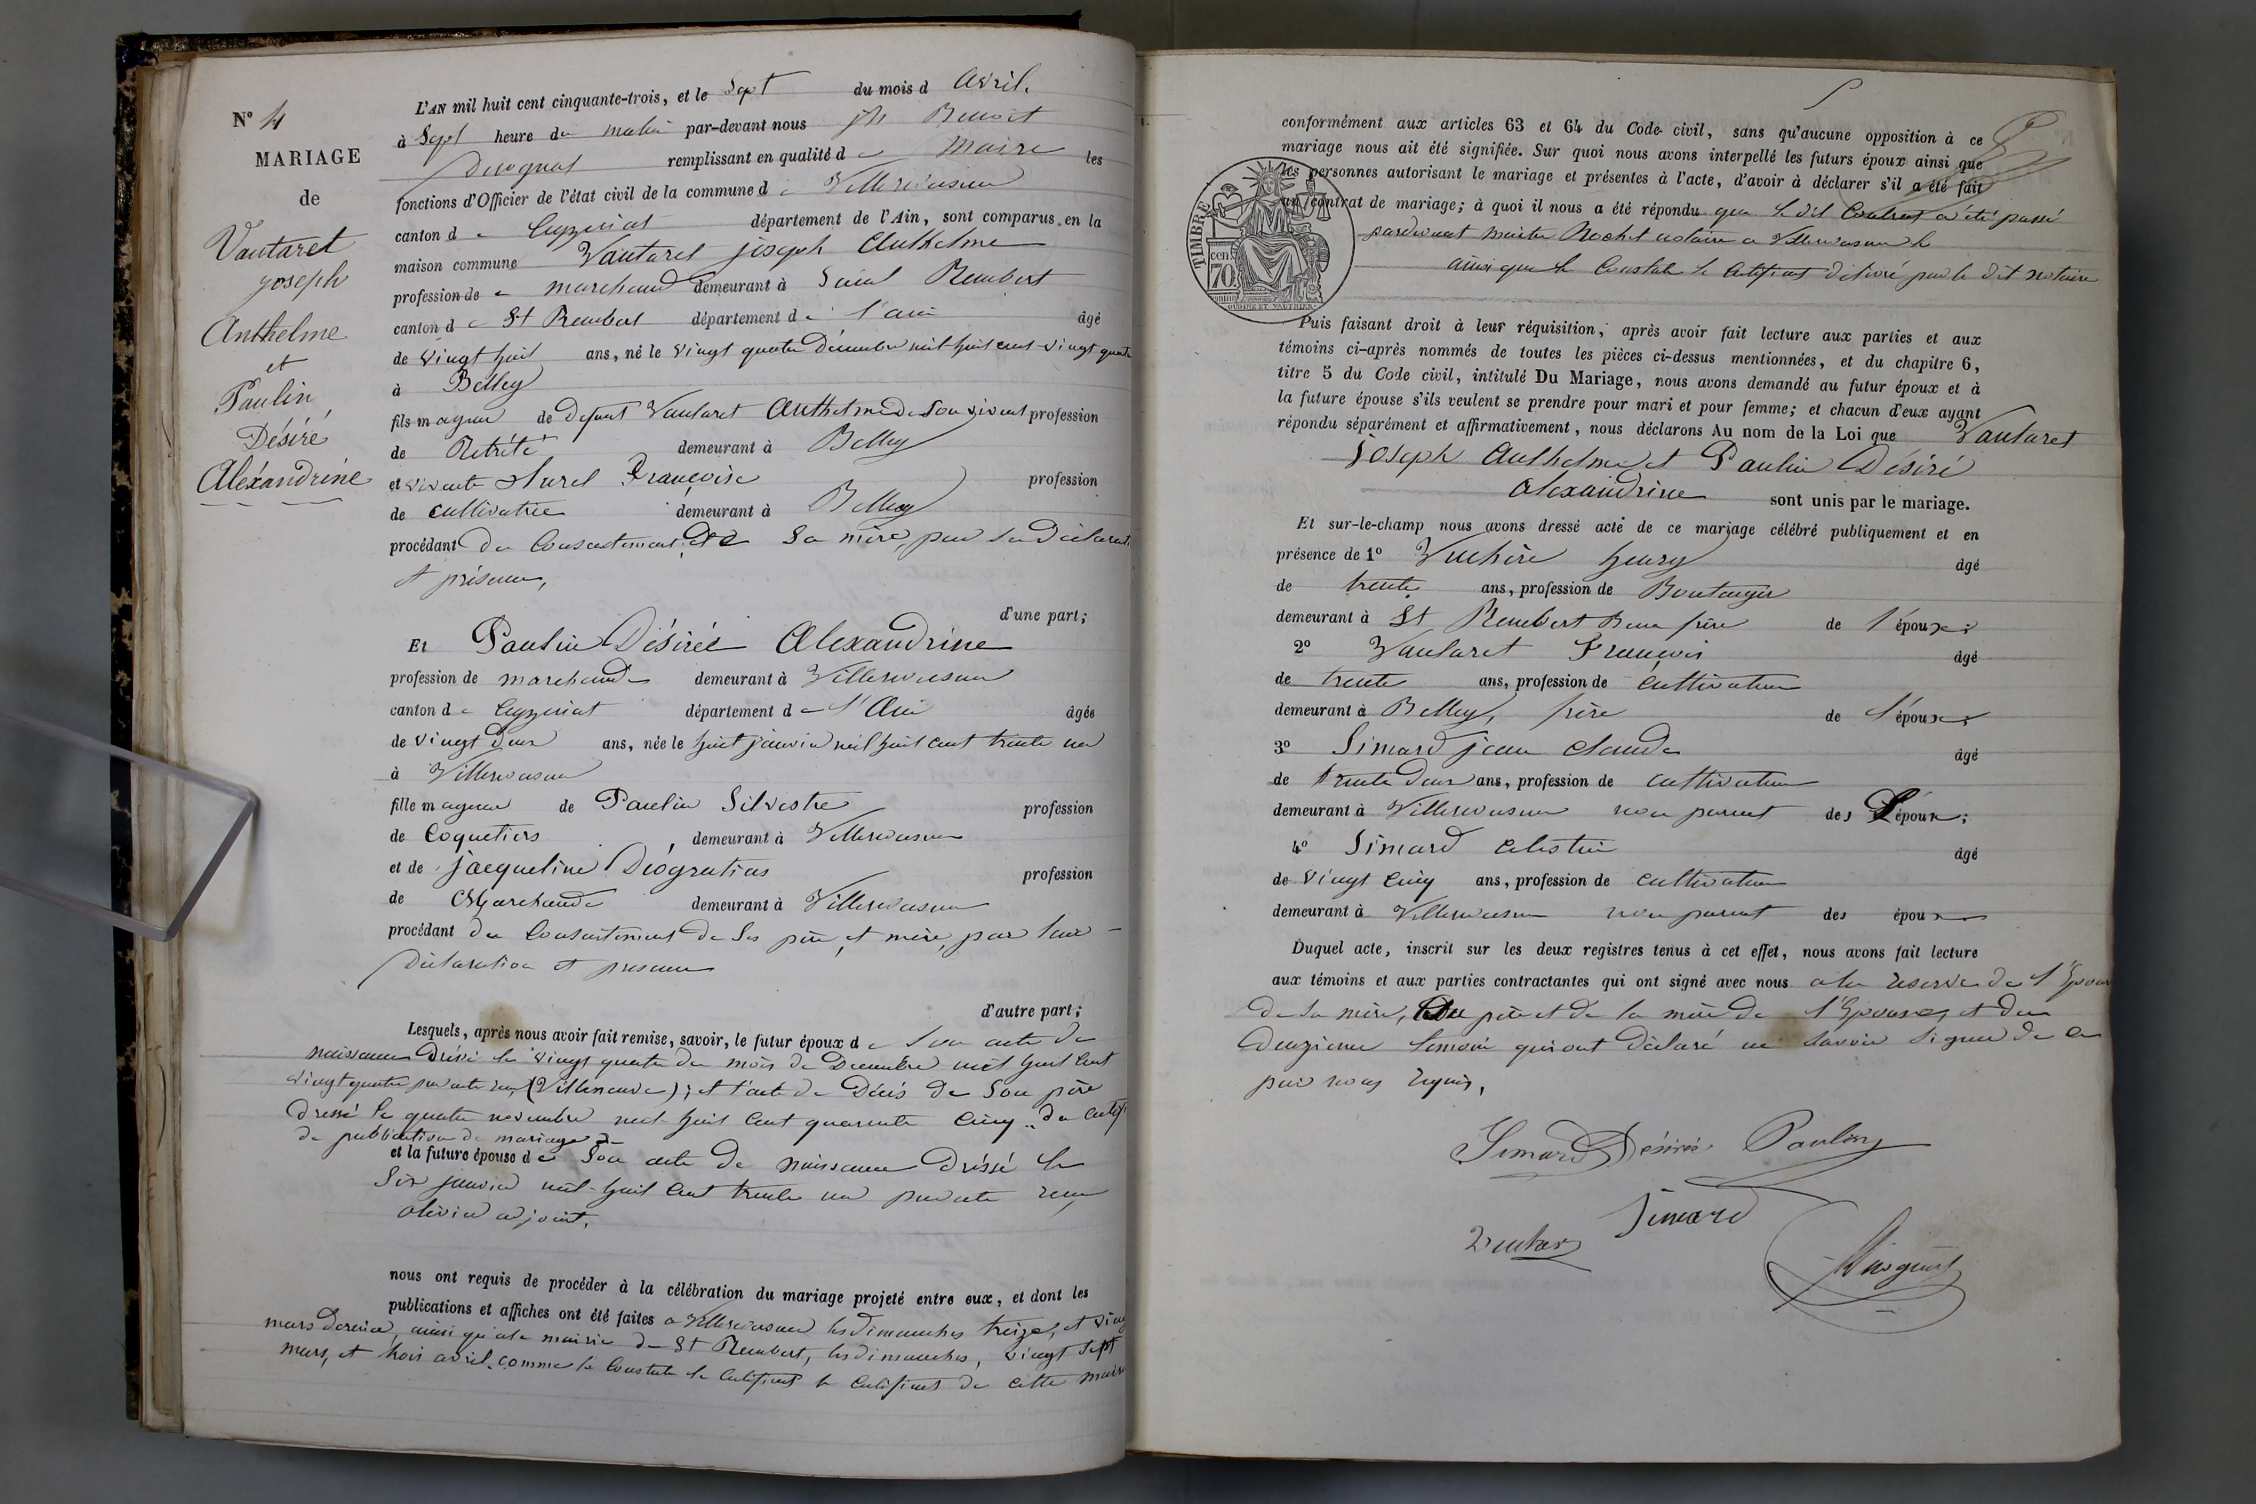 N° 4
MARIAGE
de
Vautaret
joseph
Anthelme
et
Paulin
Désiré
Aléxandrine
L'AN mil huit cent cinquante-trois, et le Sept du mois d avril.
à Sept heure du matin par-devant nous jh Benoit
remplissant en qualité de Maire les
fonctions d'Officier de l'état civil de la commune de Villereversure
canton de Ceyzeriat département de l'Ain, sont comparus en la
maison commune Vautaret joseph Anthelme
profession de marchand demeurant à Saint Rembert
canton de St Rembert département de l'ain âgé
de vingt huit ans, né le vingt quatre Décembre mil huit cent vingt quatre
à Belley
fils majeur de defunt Vautaret Anthelme de Son vivant profession
de Retrété demeurant à Belley
et vivante Françoise profession
de cultivatrice demeurant à Belley
procédant du Consentement de Sa mère, par Sa Déclarat.
et présence,
d'une part;
Et Paulin Désirée Alexandrine
profession de marchande demeurant à Villereversure
canton de Ceyzeriat département de l'Ain âgée
de vingt Deux ans, née le huit janvier mil huit cent trente un
à Villereversure
fille majeure de Paulin Silvestre profession
de Coquetiers demeurant à Villereversure
et de jacqueline Diogratias profession
de Marchande demeurant à Villereversure
procédant du Consentement de Ses père et mère, par leur
Déclaration et presence
d'autre part;
Lesquels, après nous avoir fait remise, savoir, le futur époux de Son acte de
naissance Dréssé le vingt quatre du mois de Decembre mil huit Cent
vingt quatre par acte reçu (Villeneuve); et l'acte de Décés de Son père
Dressé le quatre novembre mil huit Cent quarante Cinq
de publication de mariage
et la future épouse de Son acte de naissance Dréssé le
Six janvier mil-huit Cent trente un par acte reçu
olivier adjoint.
nous ont requis de procéder à la célébration du mariage projeté entre eux, et dont les
publications et affiches ont été faites a Villereversure les Dimanches treize, et ving
mars Dernier, ainsi qu'a la mairie de St Rembert, les Dimanches, vingt Sept
mars, et trois avril. comme le Constate le Certificat le Certificat de cette mairie
conformément aux articles 63 et 64 du Code civil, sans qu'aucune opposition à ce
mariage nous ait été signifiée. Sur quoi nous avons interpellé les futurs époux ainsi que
les personnes autorisant le mariage et présentes à l'acte, d'avoir à déclarer s'il a été fait
un contrat de mariage; à quoi il nous a été répondu que le dit Contrat a été passé
pardevant maitre Rochet notaire a Villereversure le
ainsi que le Constate le Certificat délivré par le Dit notaire
TIMBRE
cen.
70
Puis faisant droit à leur réquisition, après avoir fait lecture aux parties et aux
témoins ci-après nommés de toutes les pièces ci-dessus mentionnées, et du chapitre 6,
titre 5 du Code civil, intitulé Du Mariage, nous avons demandé au futur époux et à
la future épouse s'ils veulent se prendre pour mari et pour femme; et chacun d'eux ayant
répondu séparément et affirmativement, nous déclarons Au nom de la Loi que Vautaret
Joseph Anthelme et Paulin Désiré
alexandrine sont unis par le mariage.
Et sur-le-champ nous avons dressé acte de ce mariage célébré publiquement et en
présence de 1° henry âgé
de trente ans, profession de Boulanger
demeurant à St Rembert Beau frère de l'époux;
2° Vautaret François âgé
de trente ans, profession de cultivateur
demeurant à Belley, frère de l'époux;
3° Simard jean claude âgé
de trente Deux ans, profession de cultivateur
demeurant à Villereversure non parent des L'époux;
4° Simard celestin âgé
de vingt Cinq ans, profession de cultivateur
demeurant à Villereversure non parent des époux
Duquel acte, inscrit sur les deux registres tenus à cet effet, nous avons fait lecture
aux témoins et aux parties contractantes qui ont signé avec nous a la reserve de l'Epoux
De Sa mère, Du père et De la mère De l'Epouse, et Du
Deuzieme temoin qui ont Déclaré ne Savoir Signer De ce
par nous requis,
Simard Désirée Paulin
Simard